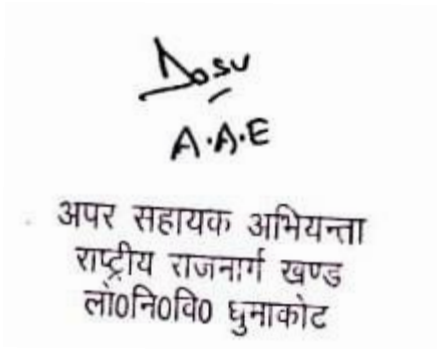 A.A.E
अपर सहायक अभियन्ता
राष्ट्रीय राजनार्ग खण्ड
लो0नि0वि0 धुमाकोट